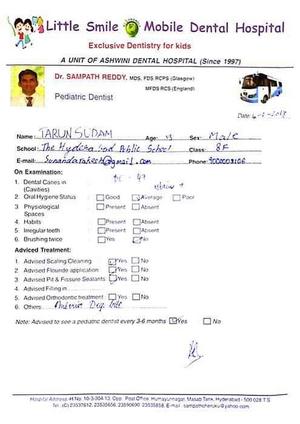 Little Smile Mobile Dental Hospital
Exclusive Dentistry for kids
A UNIT OF ASHWINI DENTAL HOSPITAL (Since 1997)
Dr. SAMPATH REDDY, MDS, FDS RCPS (Glasgow)
MFDS RCS (England)
Pediatric Dentist
Date:
Name: TARUN SUDAM Age: 13 Sex: Male
School: The Hyderabad Public School Class: 8F
E-mail: Phone:
On Examination:
1 Dental Caries in
(Cavities)
2 Oral Hygiene Status Good Average Poor
3 Physiological Present Absent
Spaces
4 Habits Present Absent
5 Irregular teeth Present Absent
6 Brushing twice Yes No
Adviced Treatment:
1 Advised Scaling Cleaning Yes No
2 Advised Flouride application Yes No
3 Advised Pit & Fissure Sealants Yes No
4 Advised Filling in
5 Advised Orthodontic treatment Yes No
6 Others Anterior Deep bite
Note: Advised to see a pediatric dentist every 3-6 months Yes No
Hospital Address: H.No. 10-3-304/13, Opp. Post Office, Humayunnagar, Masab Tank, Hyderabad - 500 028 T.S